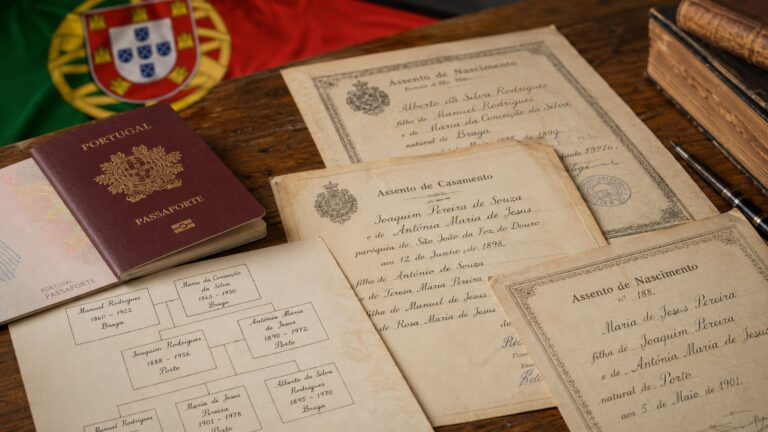 PORTUGAL
PASSAPORTE
PORTUGAL
PASSAPORTE
Assento de Nascimento
Alberto da Silva Rodrigues
filho de Manuel Rodrigues
e de Maria da Conceição da Silva
natural de Braga
Assento de Casamento
Joaquim Pereira de Souza
e de Antónia Maria de Jesus
paróquia de São João da Foz do Douro
aos 12 de Junho de 1898.
filho de António de Souza
e de Teresa Maria Pereira
filha de Manuel de Jesus
e de Rosa Maria de Jesus
Assento de Nascimento
nº 188.
Maria de Jesus Pereira
filha de Joaquim Pereira
e de Antónia Maria de Jesus
natural de Porto
aos 5 de Maio de 1901.
Manuel Rodrigues
1860 - 1922
Braga
Maria da Conceição
da Silva
1865 - 1930
Braga
Joaquim Rodrigues
1888 - 1956
Porto
Antónia Maria
de Jesus
1890 - 1972
Porto
Manuel Rodrigues
Maria de Jesus
Pereira
1901 - 1978
Porto
Alberto da Silva
Rodrigues
1895 - 1970
Braga